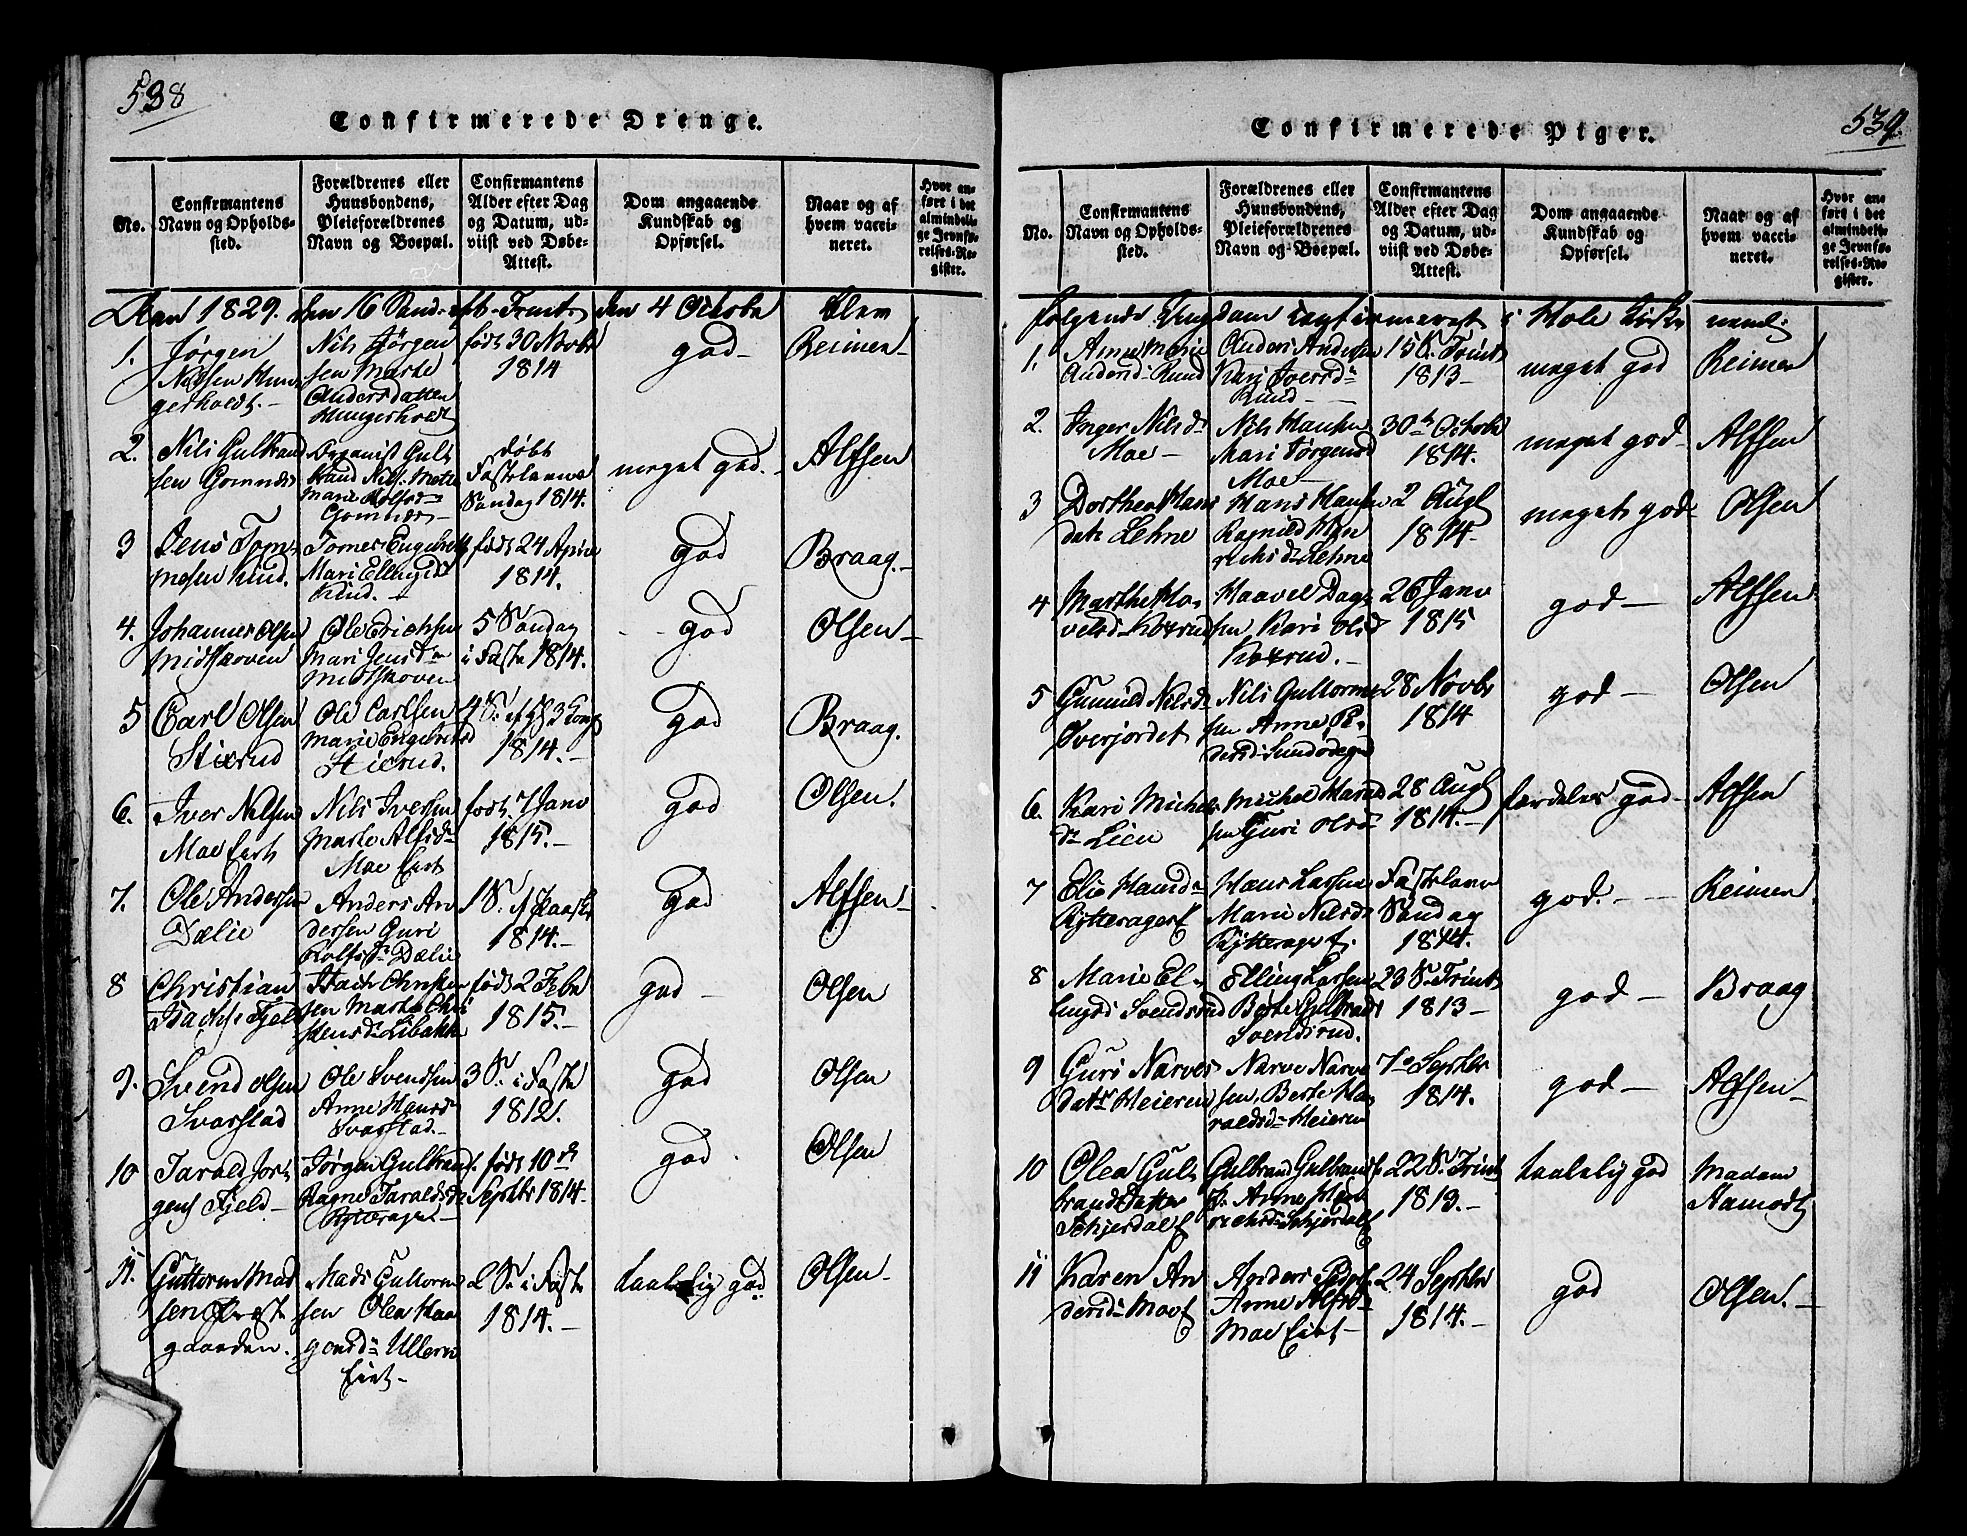 538
Confirmerede Drenge.
No.
Confirmantens
Navn og Opholds-
sted.
Forældrenes eller
Huusbondens,
Pleieforældrenes
Navn og Boepæl.
Confirmantens
Alder efter Dag
og Datum, ud-
viist ved Døbe-
Attest.
Dom angaaende
Kundskab og
Opførsel.
Naar og af
hvem vacci-
neret.
Hvor an-
ført i det
almindeli-
ge Jevnfø-
relses-Re-
gister.
1829. den 16 Sønd. eft. Trinit. den 4 Octobr
1.
Jørgen
Nilsen Hun
gerholdt.
Nils Jørgen
sen Marte
Andersdatter
Hungerholdt
født 30 Novbr
1814
god
Reimer
2.
Nils Gulbrand
sen Gomnæs
Organist Gul-
brand Nils.
Marie Rolfsd
Gomnæs
døbt
Fastelavns
Søndag 1814.
meget god.
Alfsen
3
Jens Tom-
mesen
Mari Ellingsd
født 24 April
1814.
god
Braag.
4.
Johannes Olsen
Midtskoven
Ole Erichsen
Mari Jensd
Midtskoven
5 Søndag
i Faste 1814.
god
Olsen
5
Carl Olsen
Stixrud
Ole Carlsen
Marie Engebretsd
Stixrud.
1814.
god
Braag.
6.
Iver Nilsen
Moe Eiet
Nils Iversen
Marte Alfsd
Moe Eiet
født 7 Janv
1815.
god
Olsen.
7.
Ole Andersen
Dælie
Anders An
dersen Guri
Rolfsd Dælie
1814.
god
Alfsen
8
Christian
Fjeld
født 2 Febr
1815.
god
Olsen
9.
Svend Olsen
Svarstad
Ole Svendsen
Anne Hansd
Svarstad.
3 S. i Faste
1812.
god
Olsen
10
Tarald Jør-
gens Fjeld
Jørgen Gulbrands.
Ragne Taraldsd
Rytterager
født 10de
Septbr 1814.
god
Olsen
11.
Guttorm Mad
sen
gaarden.
Mads Guttorm
sen Olea Haa
gensd Ullern
Eiet
2 S. i Faste
1814.
taalelig god
Olsen
539.
Confirmerede Piger.
No.
Confirmantens
Navn og Opholds-
sted.
Forældrenes eller
Huusbondens,
Pleieforældrenes
Navn og Boepæl.
Confirmantens
Alder efter Dag
og Datum, ud-
viist ved Døbe-
Attest.
Dom angaaende
Kundskab og
Opførsel.
Naar og af
hvem vacci-
neret.
Hvor an-
ført i det
almindeli-
ge Jevnfø-
relses-Re-
gister.
følgende Ungdom confirmeret i Hole Kirke neml:
1.
Anne Marie
Andersd Rud
Anders Andersen
Kari Iversd
Rud
15 S. Trinit
1813
meget god
Reimer
2.
Inger Nilsd
Moe
Nils Hansen
Mari Jørgensd
Moe
30te Octobr
1814.
meget god
Alfsen
3
Dorthea Hans
datr Lehne
Hans Hansen
Ragnild Hen
richsd Lehne
2 Augl
1814.
meget god
Olsen
4
Marthe Ha-
velsd Roxrud
Haavel Dag-
sen Kari Olsd
Roxrud.
26 Janv
1815
god
Alfsen
5
Gunild Nilsd
Øverjordet
Nils Guttorm
sen Anne Pe-
dersd Sundødegrd
28 Novbr
1814
god
Olsen
6.
Kari Michels
dr Lien
Michel Hans
sen Guri Olsd
28 Augl
1814.
særdeles god
Alfsen
7
Elie Hansd
Rytteragerf
Hans Larsen
Marie Nilsd
Rytterager f.
Fastelavns
Søndag
1814.
god.
Reimer
8
Marie El-
lingsd Svendsrud
Elling Larsen
Berte Gulbrandsd
Svendsrud.
23 S. Trinit
1813
god
Braag
9
Guri Narves
datr Heieren
Narve Narve
sen, Berte Ha
raldsd Heieren
7de Septbr
1814.
god
Alfsen
10
Olea Gul-
brandsDatter
Schjerdal f
Gulbrand Gulbrands
Anne Hen
richsd Schjerdal f
22 S. Trinit
1813.
taalelig god
Madam
Aamodt
11
Karen An
dersd Moe f
Anders
Anne Alfsd
Moe Eiet
24 Septbr
1814.
god
Olsen.